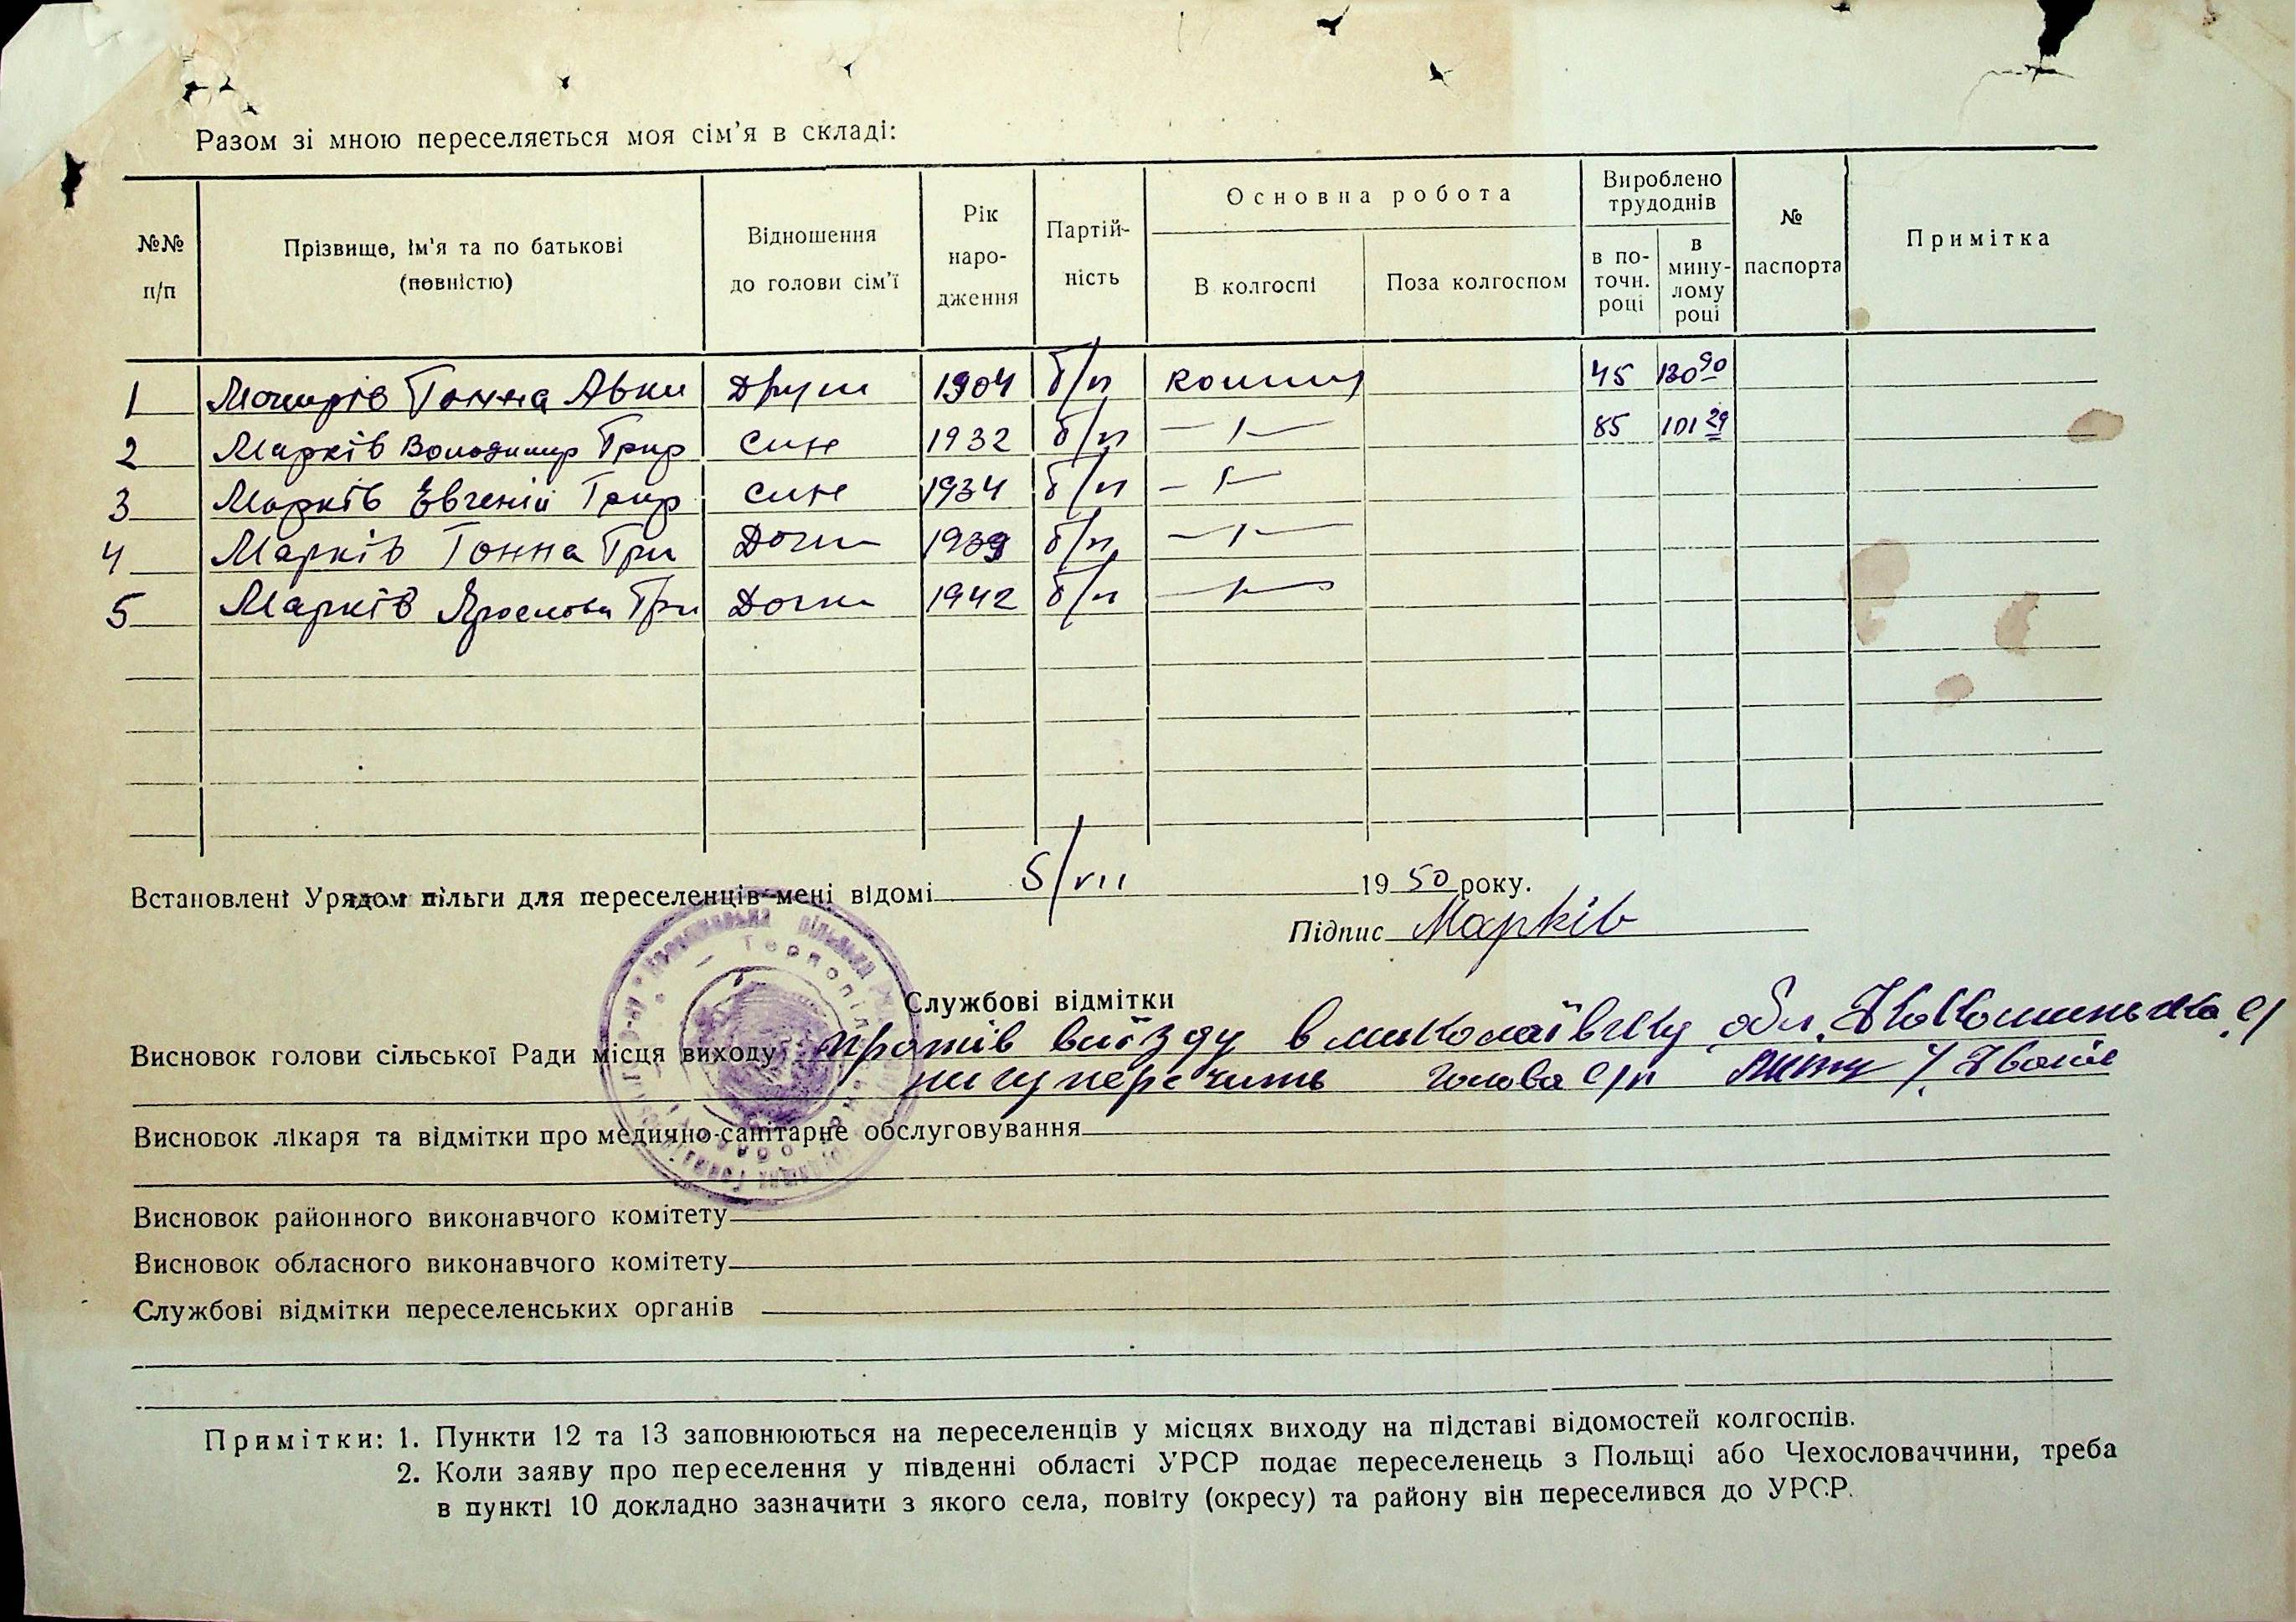 Разом зі мною переселяється моя сім'я в складі:
№№ п/п
Прізвище, ім'я та по батькові (повністю)
Відношення до голови сім'ї
Рік народження
Партійність
Основна робота
В колгоспі
Поза колгоспом
Вироблено трудоднів
в поточн. році
в минулому році
№ паспорта
Примітка
1 Ганна 1904 б/п 45 130 90
2 Марків Володимир Григ син 1932 б/п —"— 85 101 29
3 Марків Евгеній Григ син 1934 б/п —"—
4 Марків Ганна Гри Дочка 1939 б/п —"—
5 Марків Ярослава Гри Дочка 1942 б/п —"—
Встановлені Урядом пільги для переселенців мені відомі 5/VII 1950 року.
Підпис Марків
Службові відмітки
Висновок голови сільської Ради місця виходу: против виїзду в миколаївську обл.
голова с/р
Висновок лікаря та відмітки про медично-санітарне обслуговування
Висновок районного виконавчого комітету
Висновок обласного виконавчого комітету
Службові відмітки переселенських органів
Примітки: 1. Пункти 12 та 13 заповнюються на переселенців у місцях виходу на підставі відомостей колгоспів.
2. Коли заяву про переселення у південні області УРСР подає переселенець з Польщі або Чехословаччини, треба
в пункті 10 докладно зазначити з якого села, повіту (окресу) та району він переселився до УРСР.